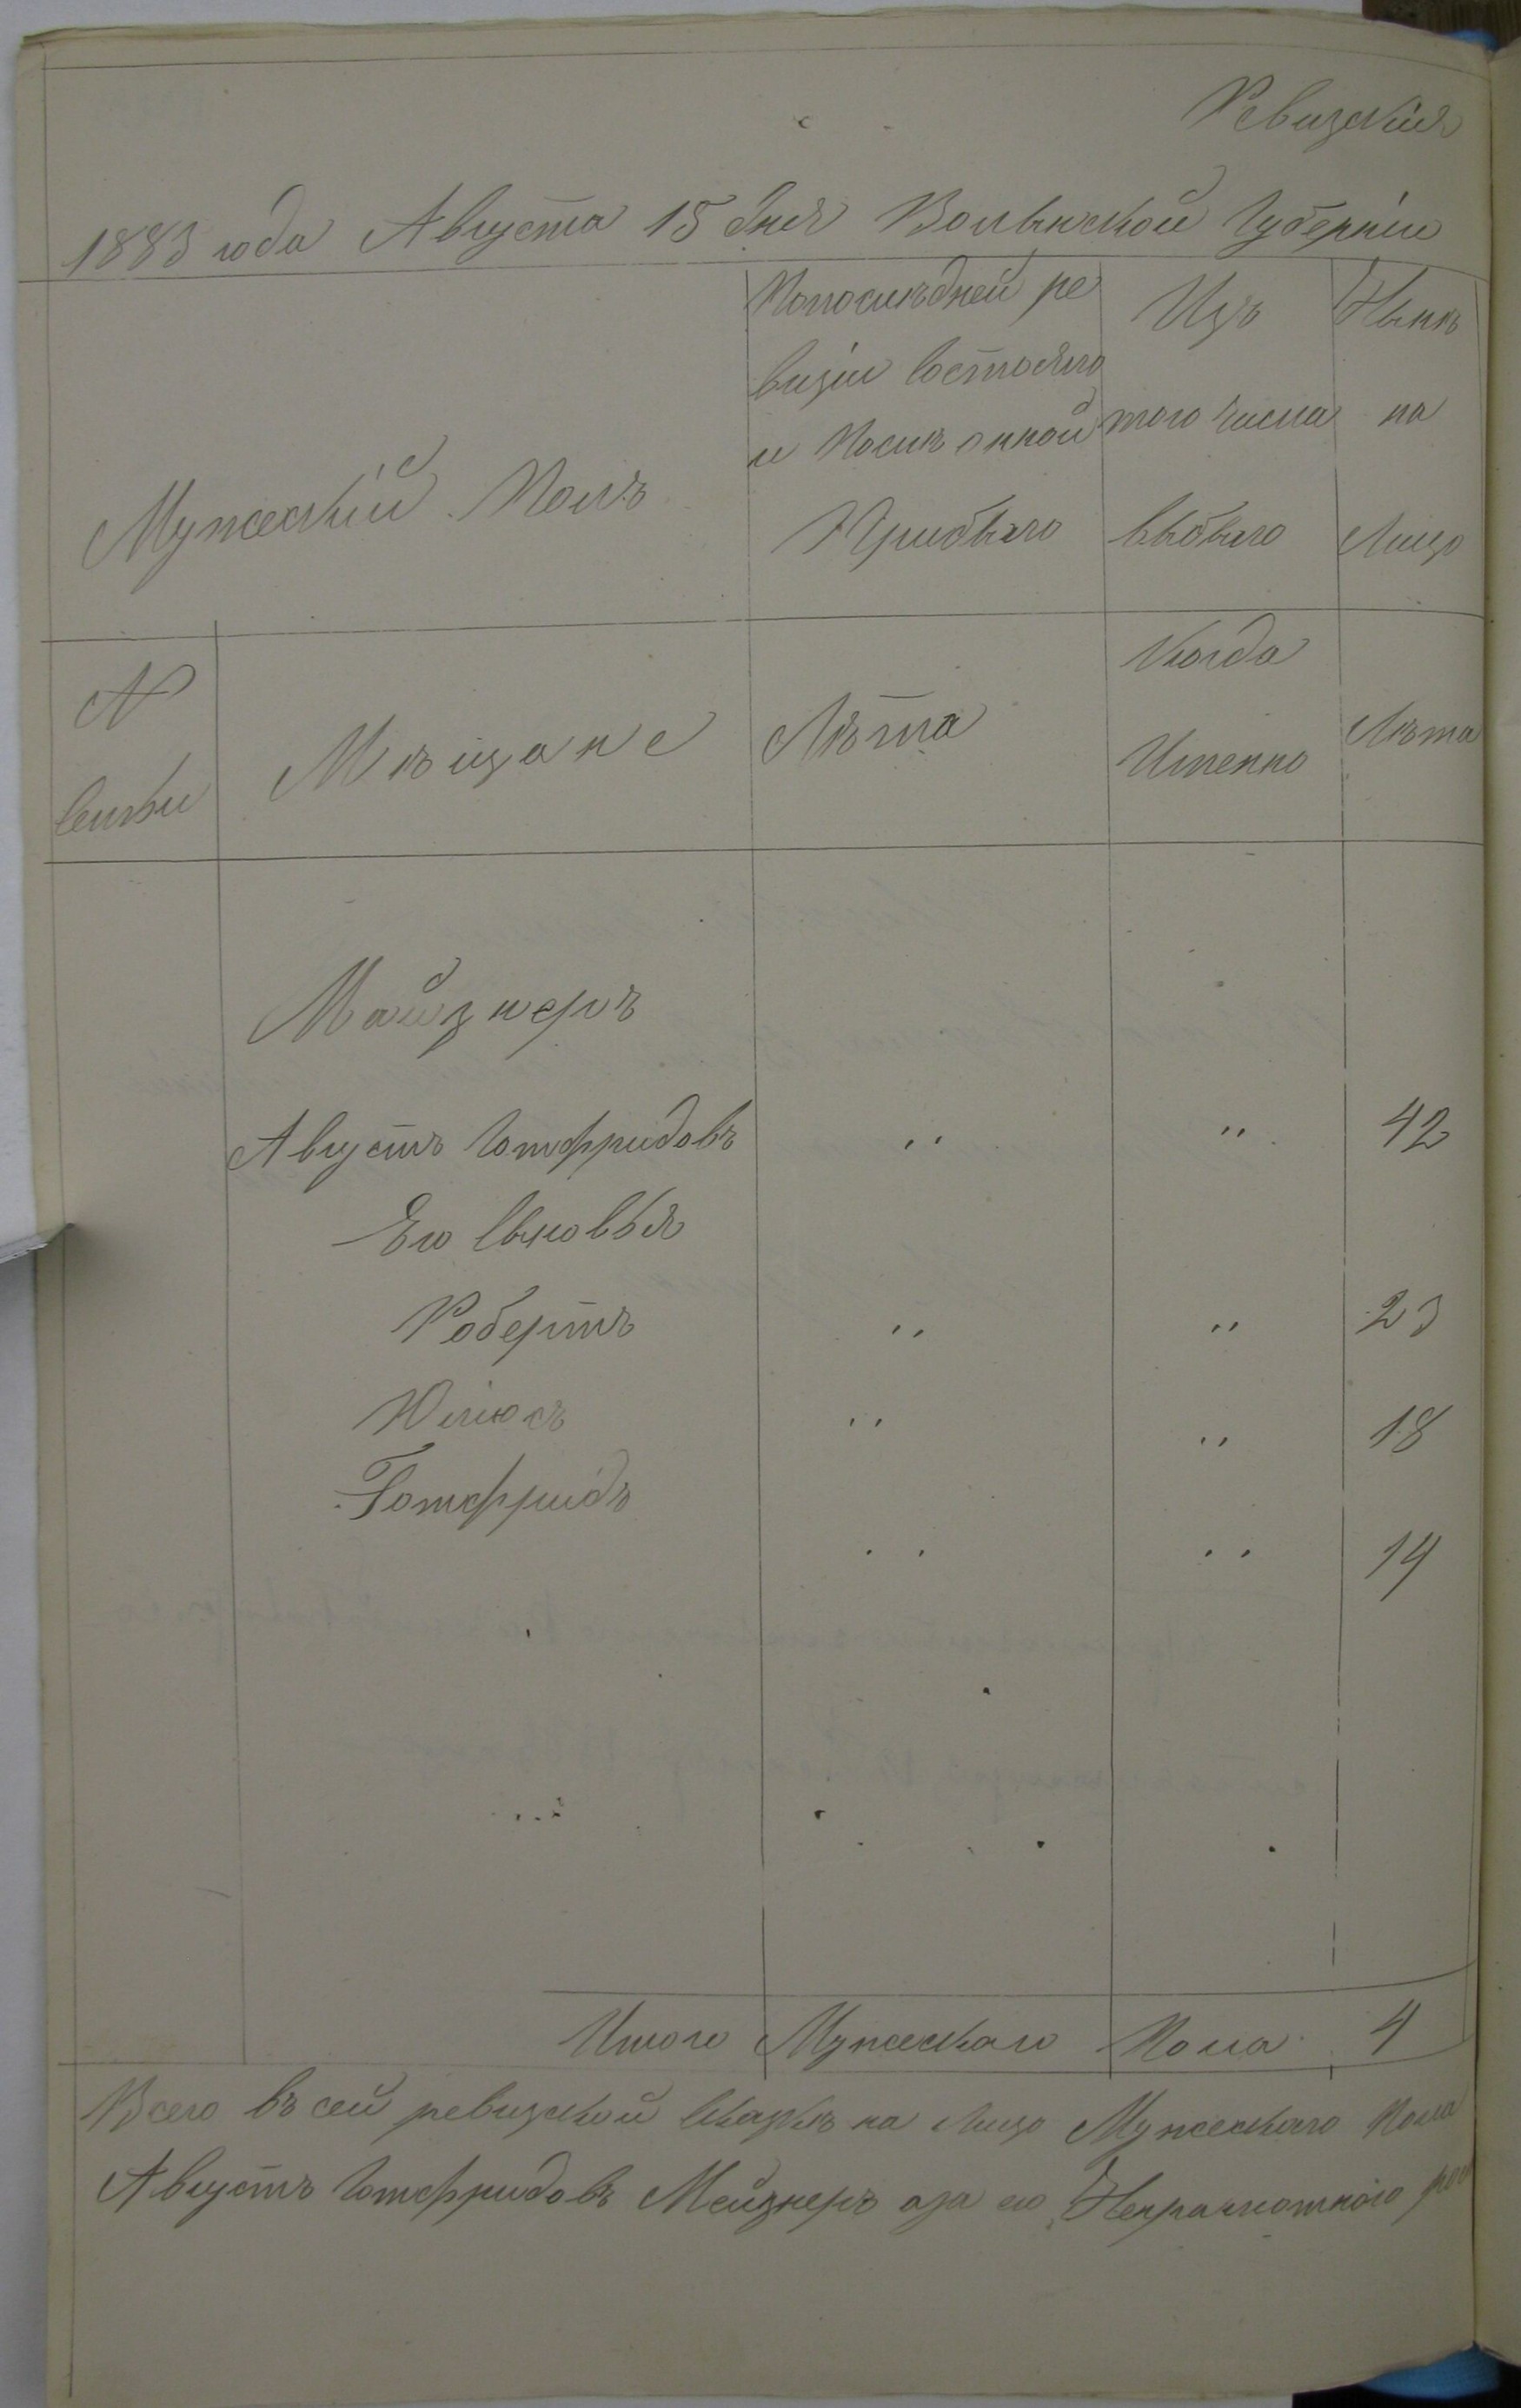 Ревизскія
1883 года Августа 15 дня Волынской Губерніи
Мужескій Полъ
Попослѣдней ре
визіи состояло
и Послѣ онной
Прибыло
Изъ
того числа
выбыло
Нынѣ
на
Лицо
№
семьи
Мѣщане
Лѣта
Когда
Именно
Лѣта
Майзнеръ
Августъ Готфридовъ " " 42
Его сыновья
Робертъ " " 23
Юліюсъ " " 18
Готфридъ
" " 14
Итого Мужескаго Пола 4
Всего въ сей ревизской сказкѣ на Лицо Мужескаго Пола
Августъ Готфридовъ Мейзнеръ аза его Неграмотного